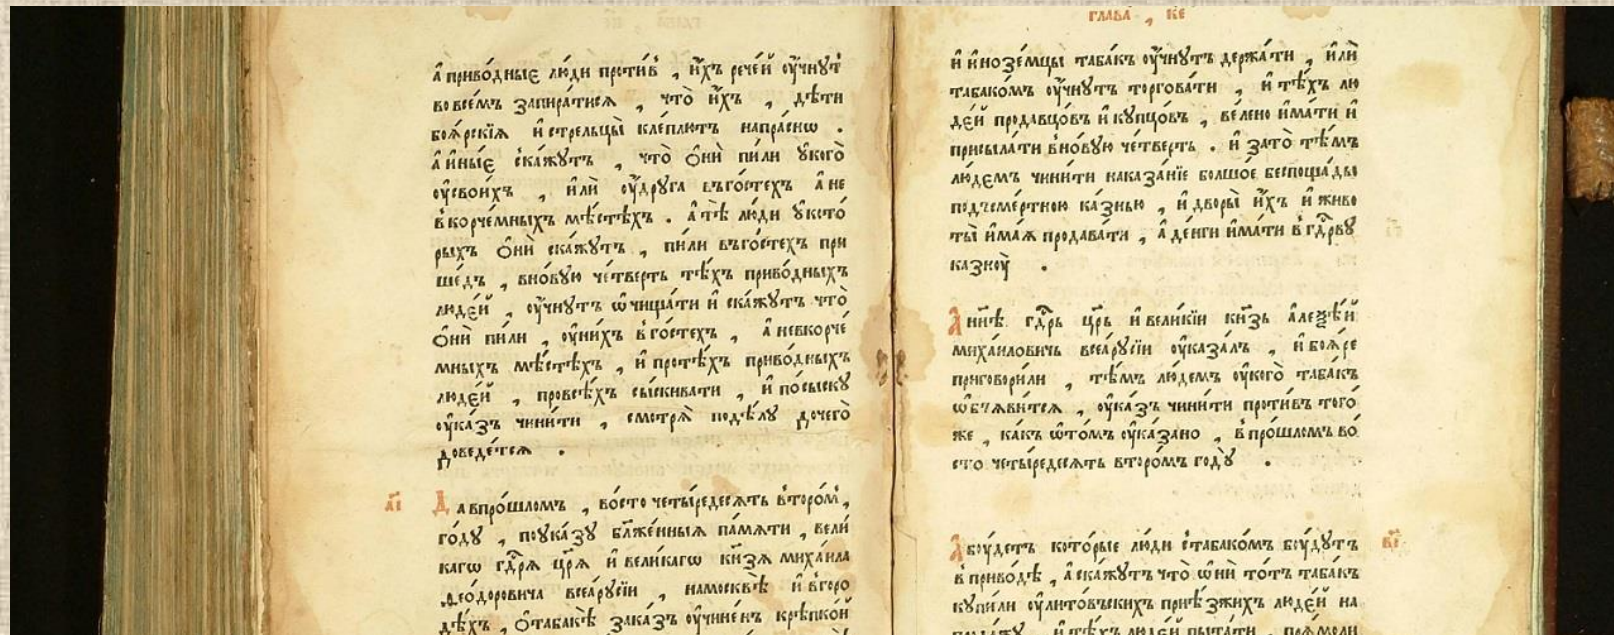 а҆ приво́дные лю́ди проти́в , и҆́хъ рече́й ᲂу҆чнꙋ́т
во все́мъ запира́тисѧ , что̀ и҆́хъ , дѣ́ти
боѧ́рскїѧ и҆ стрельцы̀ кле́плютъ напра́снѡ .
а҆ и҆ны́е ска́жꙋтъ , что̀ ѻ҆нѝ пи́ли ᲂу҆ кого̀
ᲂу҆ свои́хъ , и҆лѝ ᲂу҆ дрꙋ́га въ го́стех а҆ не
в корче́мныхъ мѣ́стѣхъ . а҆ тѣ̀ лю́ди ᲂу҆ кото́
рыхъ ѻ҆нѝ ска́жꙋтъ , пи́ли въ го́стех при
ше́дъ , в но́вꙋю че́тверть тѣ́хъ приво́дныхъ
люде́й , ᲂу҆чнꙋ́тъ ѡ҆чища́ти и҆ ска́жꙋтъ что̀
ѻ҆нѝ пи́ли , ᲂу҆ ни́хъ в го́стехъ , а҆ не в корче́
мныхъ мѣ́стѣхъ , и҆ про тѣ́хъ приво́дныхъ
люде́й , про всѣ́хъ сы́скивати , и҆ по сы́скꙋ
ᲂу҆ка́зъ чини́ти , смотрѧ̀ по дѣ́лꙋ до чего̀
доведе́тсѧ .
а҃і Да в про́шломъ , во́ сто четы́редесѧть второ́м ,
го́дꙋ , по ᲂу҆ка́зꙋ бл҃же́нныѧ па́мѧти , вели́
кагѡ гд҃рѧ цр҃ѧ и҆ вели́кагѡ кн҃зѧ миха́ила
ѳео́доровича всеѧ̀ рꙋсі́и , на москвѣ̀ и҆ в горо
дѣ́хъ , ѻ҆ табакѣ̀ зака́зъ ᲂу҆чине́нъ крѣ́пкой
глава̀ , к҃е
и҆ и҆нозе́мцы таба́къ ᲂу҆чнꙋ́тъ держа́ти , и҆лѝ
табако́мъ ᲂу҆чнꙋ́тъ торгова́ти , и҆ тѣ́хъ лю
де́й продавцо́въ и҆ кꙋпцо́въ , ве́лено и҆ма́ти и҆
присыла́ти в но́вꙋю че́тверть . и҆ за то̀ тѣ́мъ
лю́демъ чини́ти наказа́нїе болшо́е беспоща́дно
под сме́ртною ка́знью , и҆ дворы̀ и҆́хъ и҆ живо
ты̀ и҆ма́ѧ продава́ти , а҆ де́нги и҆ма́ти в гд҃рвꙋ
казнꙋ̀ .
А҆ нн҃ѣ гд҃рь цр҃ь и҆ вели́кїи кн҃зь а҆леѯѣ́й
миха́иловичь всеѧ̀ рꙋсі́и ᲂу҆каза́лъ , и҆ боѧ́ре
приговори́ли , тѣ́мъ лю́демъ ᲂу҆ кого̀ таба́къ
ѡ҆б̾ѧ́витсѧ , ᲂу҆ка́зъ чини́ти проти́въ того́
же , ка́къ ѡ҆ то́мъ ᲂу҆ка́зано , в про́шломъ во
сто четы́редесѧть второ́мъ годꙋ̀ .
А҆ бꙋ́детъ кото́рые лю́ди с табако́мъ бꙋ́дꙋтъ в҃і
в приво́дѣ , а҆ ска́жꙋтъ что̀ ѡ҆нѝ то́тъ таба́къ
кꙋпи́ли ᲂу҆ лито́въскихъ прїѣ́зжихъ люде́й на
и҆ тѣ́хъ люде́й пыта́ти